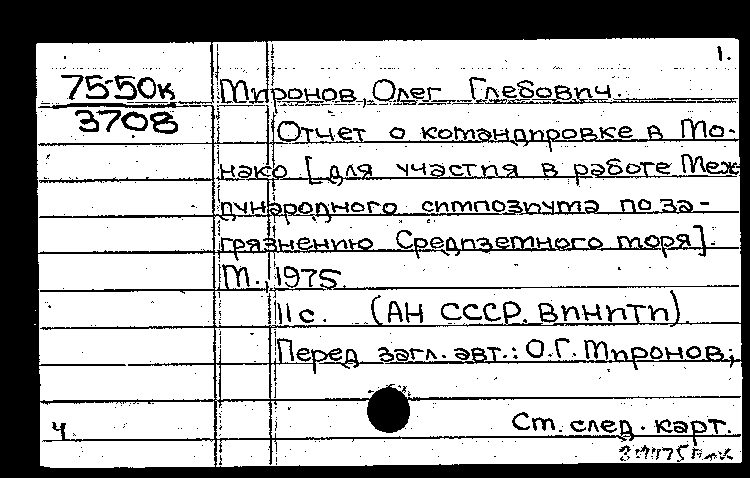 1.
75-50к
3708
Миронов, Олег Глебович.
Отчет о командировке в Мо-
нако [для участия в работе Меж
дународного симпозиума по за-
грязнению Средиземного моря].
М., 1975.
11 с. (АН СССР. ВИНИТИ)
Перед загл. авт.: О.Г. Миронов;
Ч
Ст. след. карт.